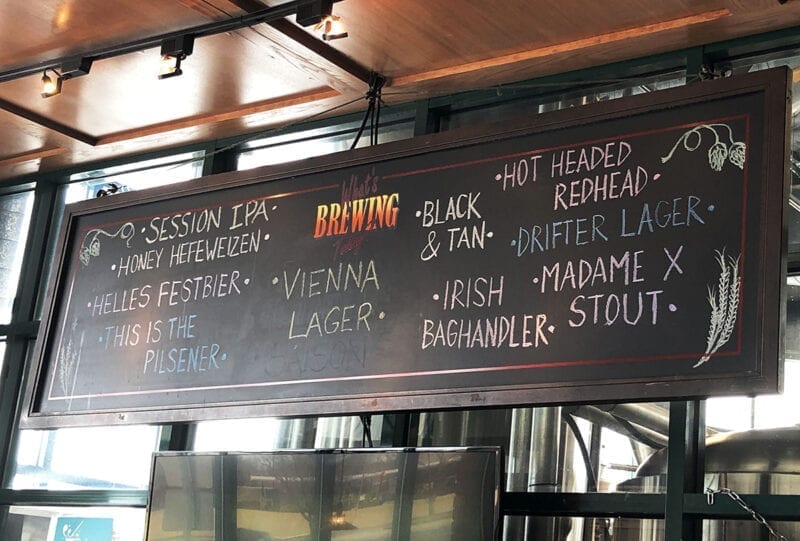 What's
BREWING
Today
·SESSION IPA·
·HONEY HEFEWEIZEN·
·HELLES FESTBIER·
·THIS IS THE
PILSENER·
·VIENNA
LAGER·
SAISON
·BLACK
& TAN·
·IRISH
BAGHANDLER·
·HOT HEADED
REDHEAD·
·DRIFTER LAGER·
·MADAME X
STOUT·